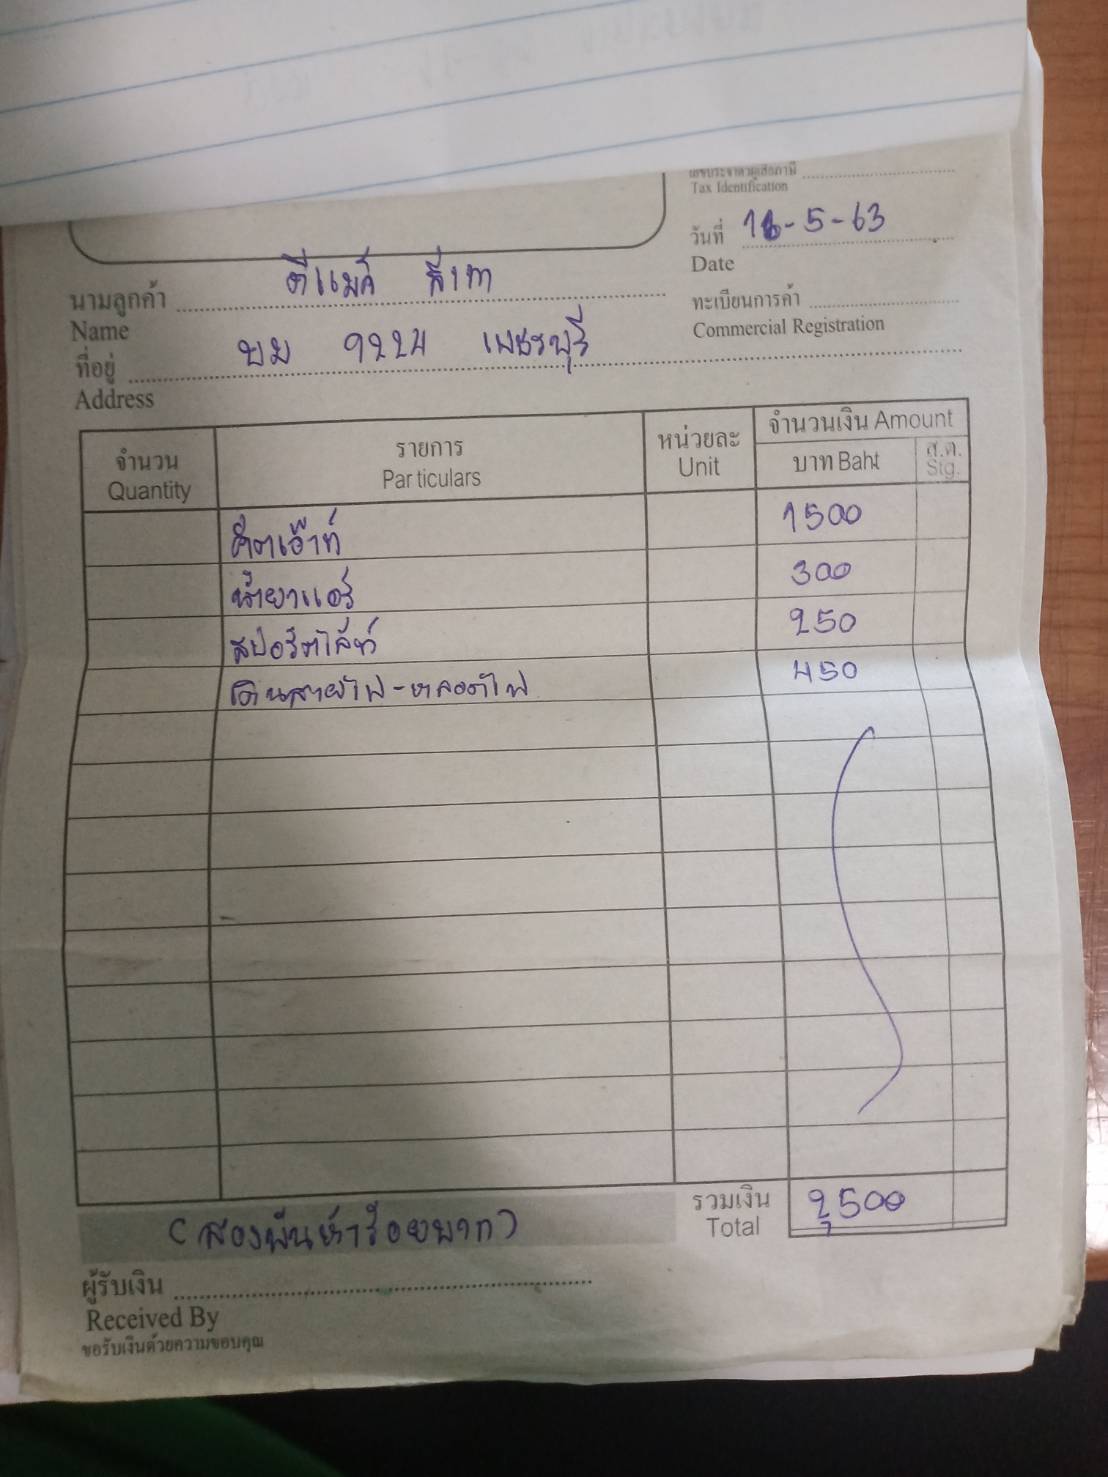 เลขประจำตัวผู้เสียภาษี
Tax Identification
วันที่ 16-5-63
Date
นามลูกค้า ดีแมคี สีเทา
Name
ทะเบียนการค้า
Commercial Registration
ที่อยู่ บม 9224 เพชรบุรี
Address
จำนวน รายการ หน่วยละ จำนวนเงิน Amount
Quantity Particulars Unit บาท Baht ส.ต. Stg.
คัตเอ๊าท์ 1500
น้ำยาแอร์ 300
สปอร์ตไล้ท์ 250
เดินสายไฟ-หลอดไฟ 450
รวมเงิน 2,500
Total
(สองพันห้าร้อยบาท)
ผู้รับเงิน
Received By
ขอรับเงินด้วยความขอบคุณ